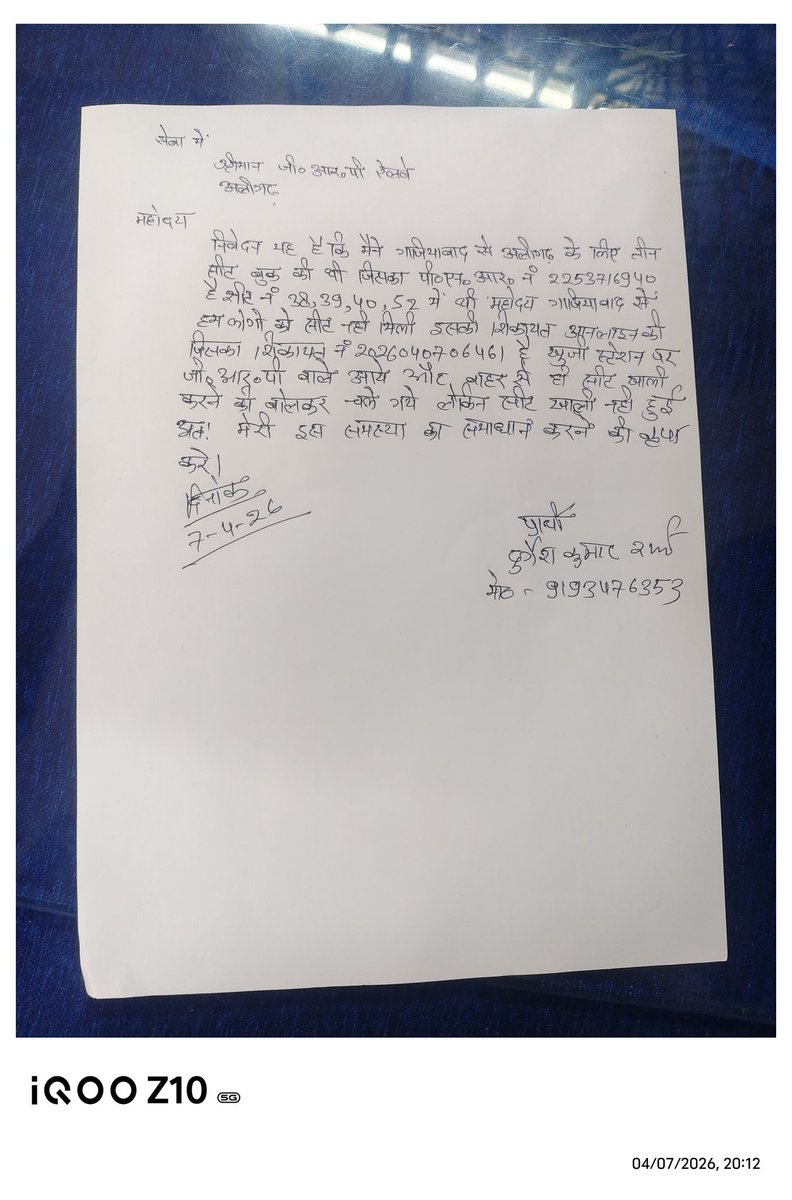 सेवा में
श्रीमान जी०आर०पी रेलवे
अलीगढ़
महोदय
निवेदन यह है कि मैने गाजियाबाद से अलीगढ़ के लिए तीन
सीट बुक की थी जिसका पी०एन०आर० नं 2253716940
है सीट नं 38,39,40,52 में थी महोदय गाजियाबाद से
हम लोगो को सीट नही मिली इसकी शिकायत आनलाइन की
जिसका शिकायत नं 2026040706461 है खुर्जा स्टेशन पर
जी०आर०पी वाले आये और बाहर से ही सीट खाली
करने की बोलकर चले गये लेकिन सीट खाली नही हुई
अतः मेरी इस समस्या का समाधान करने की कृपा
करे।
दिनांक
7-4-26
प्रार्थी
कुमार शर्मा
मो० - 9193476353
iQOO Z10 5G
04/07/2026, 20:12